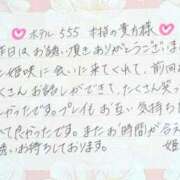 ホテル555 本指の貴方様
昨日はお誘い頂きありがとうございま
姫咲に会いに来てくれて、前回
くさんお話しができて、たくさん
かったです。プレイもお互い気持ち
て良かったです。またお時間が合え
お待ちしております。
姫